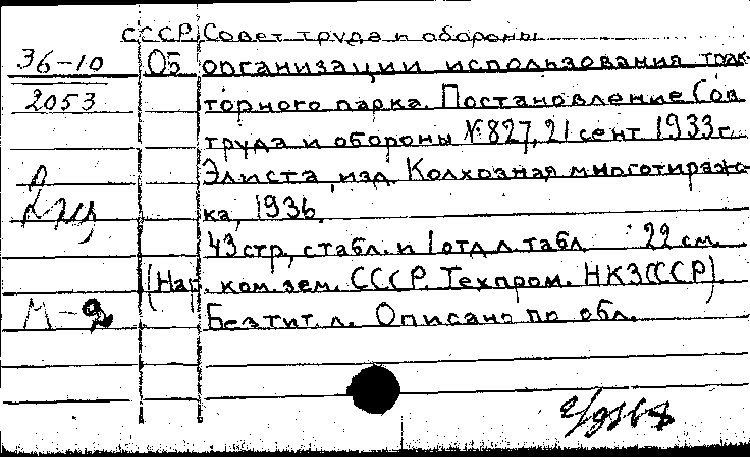 СССР. Совет труда и обороны
36-10 Об организации использования трак-
2053 торного парка. Постановление Сов.
труда и обороны № 827, 21 сент 1933 г.
Элиста, изд. Колхозная многотиражо-
ка, 1936.
43 стр., с табл. и 1 отд. л. табл. 22 см.
(Нар. ком. зем. СССР. Техпром. НКЗ СССР).
М-2 Без тит. л. Описано по обл.